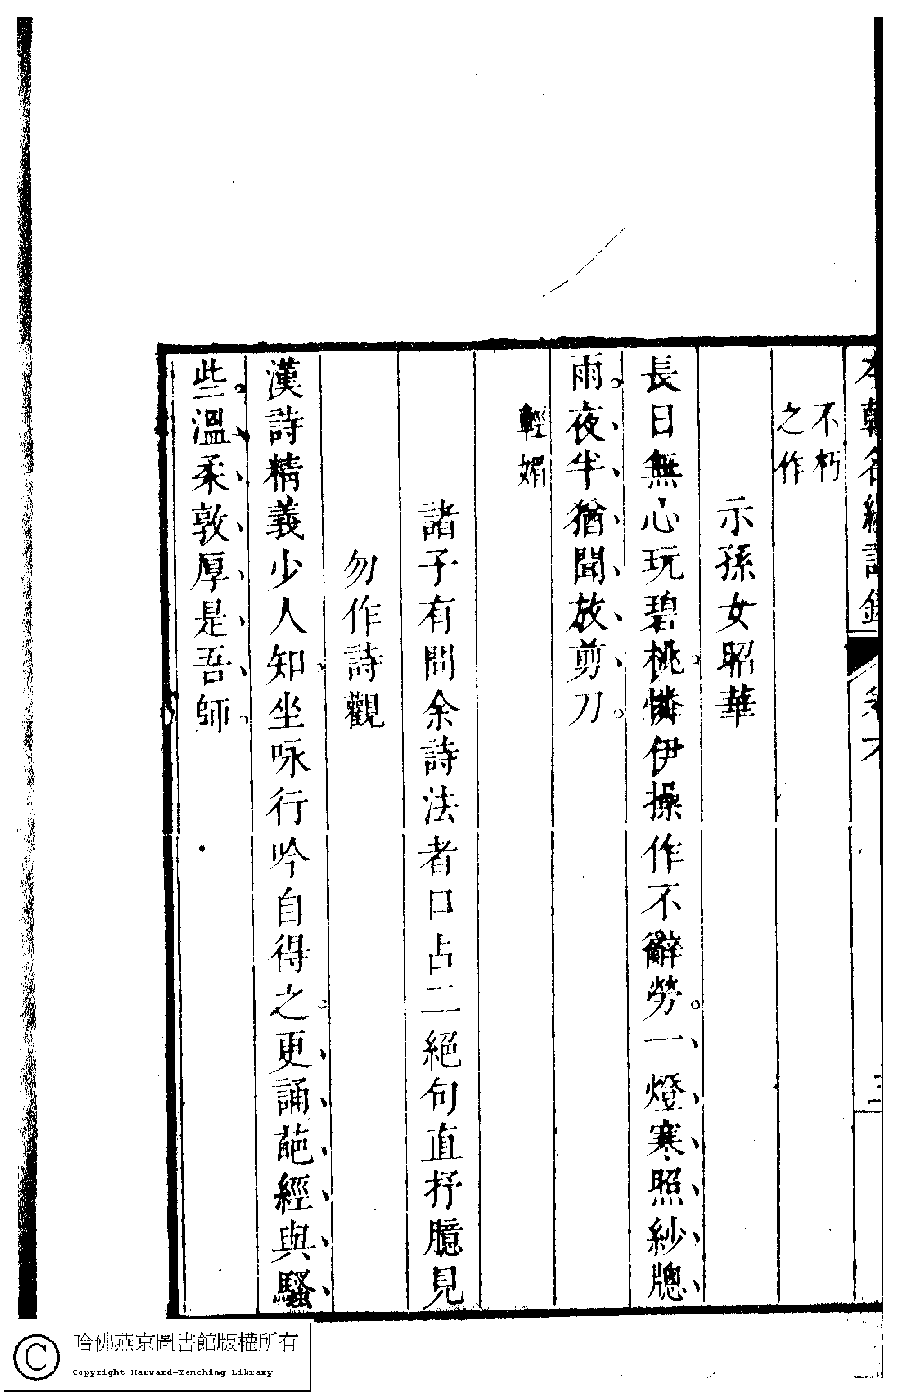 本朝名媛詩鈔 卷六
不朽
之作
示孫女昭華
長日無心玩碧桃憐伊操作不辭勞一燈寒照紗牕
雨夜半猶聞放剪刀
輕媚
諸子有問余詩法者口占二絕句直抒臆見
勿作詩觀
漢詩精義少人知坐咏行吟自得之更誦葩經與騷
些溫柔敦厚是吾師
哈佛燕京圖書館版權所有
Copyright Harvard-Yenching Library